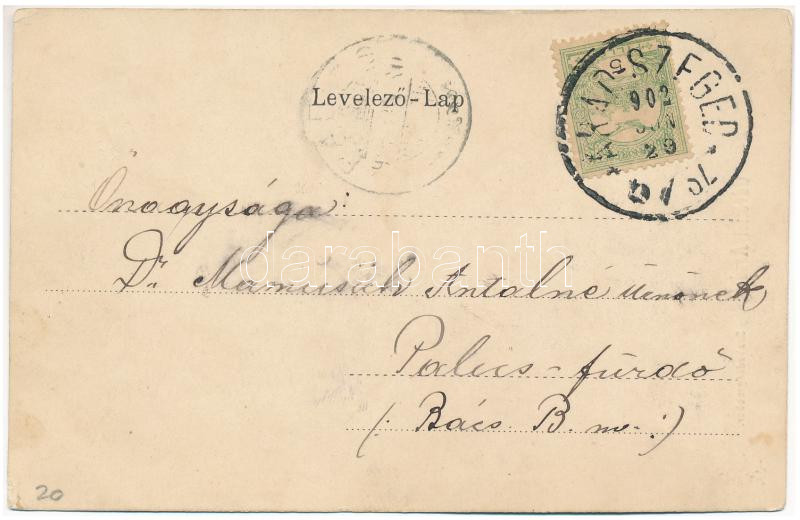 Levelező-Lap
SZEGED
902
JUN
29
5
Őnagysága:
darabanth
Dr. Antalné
Palics-fürdő
(: Bács B. m. :)
20